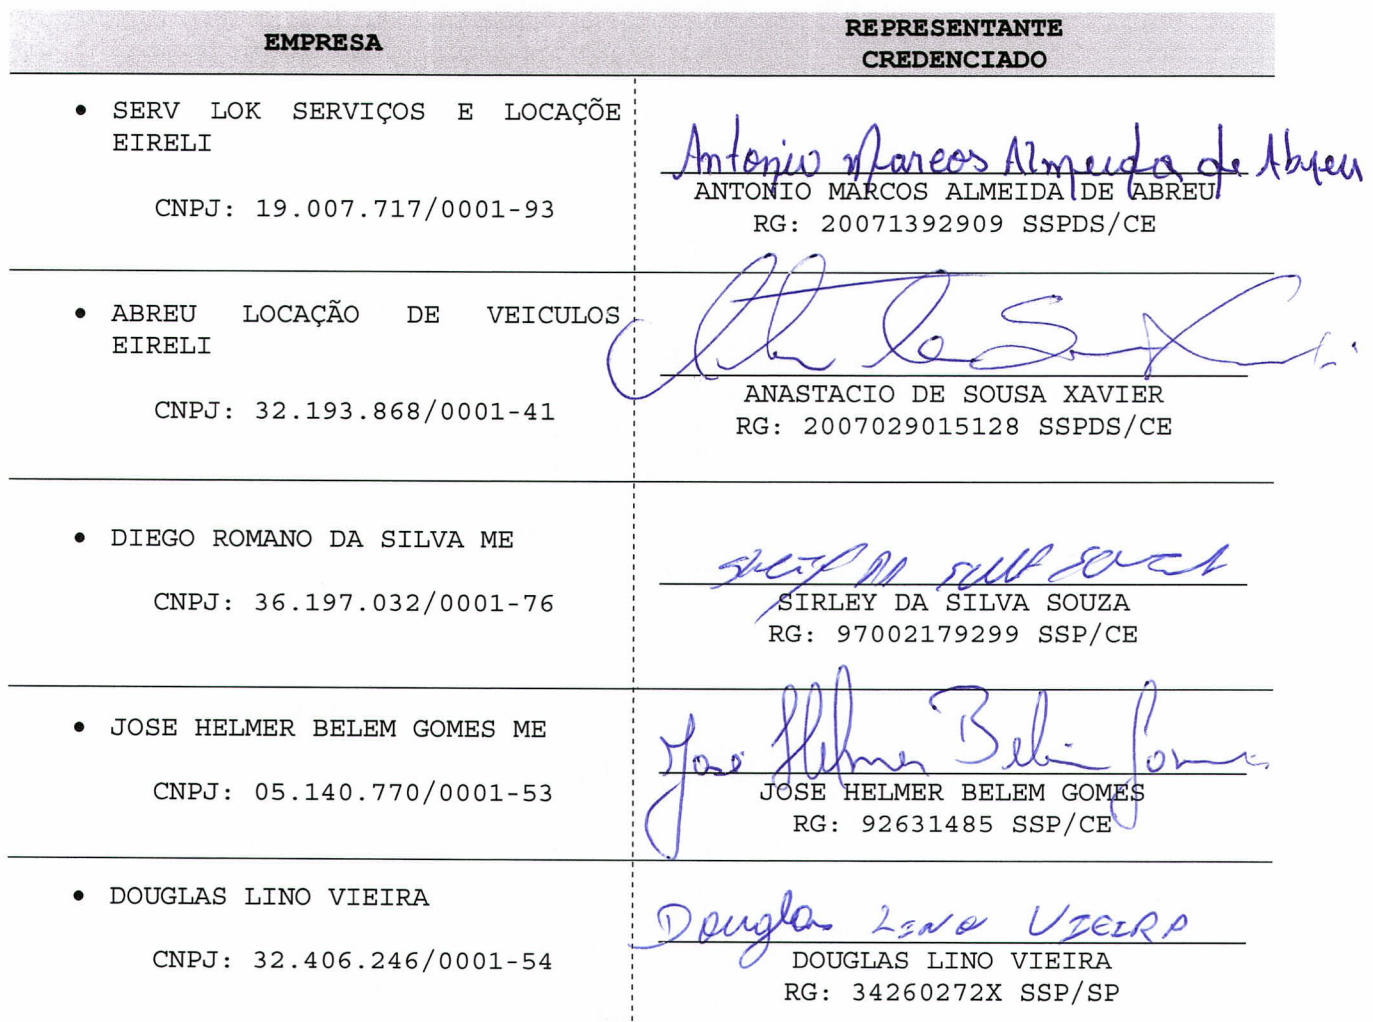 EMPRESA
REPRESENTANTE
CREDENCIADO
• SERV LOK SERVIÇOS E LOCAÇÕE
EIRELI
CNPJ: 19.007.717/0001-93
Antonio Marcos Almeida de Abreu
ANTONIO MARCOS ALMEIDA DE ABREU
RG: 20071392909 SSPDS/CE
• ABREU LOCAÇÃO DE VEICULOS
EIRELI
CNPJ: 32.193.868/0001-41
ANASTACIO DE SOUSA XAVIER
RG: 2007029015128 SSPDS/CE
• DIEGO ROMANO DA SILVA ME
CNPJ: 36.197.032/0001-76
SIRLEY DA SILVA SOUZA
RG: 97002179299 SSP/CE
• JOSE HELMER BELEM GOMES ME
CNPJ: 05.140.770/0001-53
José Helmer Belém Gomes
JOSE HELMER BELEM GOMES
RG: 92631485 SSP/CE
• DOUGLAS LINO VIEIRA
CNPJ: 32.406.246/0001-54
Douglas LINO VIEIRA
DOUGLAS LINO VIEIRA
RG: 34260272X SSP/SP